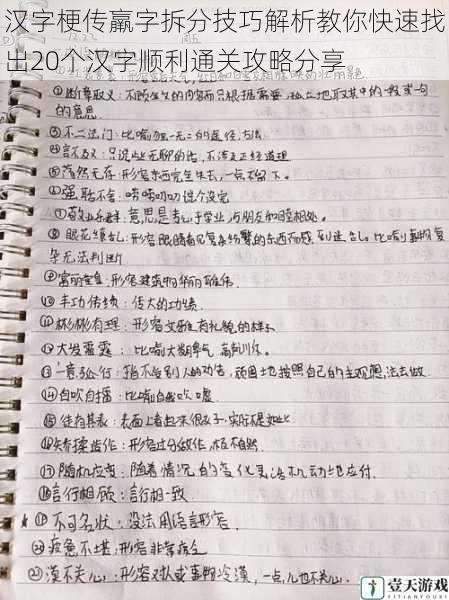 汉字梗传羸字拆分技巧解析教你快速找
出20个汉字顺利通关攻略分享
②断章取义：不顾全文的内容而只根据需要，孤立地取其中的一段或一句
的意思
③不二法门：比喻独一无二的途径，方法
④言不及义：只说些无聊的话，不涉及正经道理
⑤荡然无存：形容东西完全失去，一点不留下。
⑥强聒不舍：唠唠叨叨说个没完
⑦敬业乐群：意思是专心于学业，与朋友和睦相处。
⑧眼花缭乱：形容眼睛看见复杂纷繁的东西而感到迷乱。比喻事物复
杂无法判断
⑨富丽堂皇：形容建筑物华丽雄伟
⑩丰功伟绩：伟大的功绩
⑪彬彬有理：形容文雅有礼貌的样子
⑫大发雷霆：比喻大发脾气，高声训斥。
⑬一意孤行：指不听别人的劝告，顽固地按照自己的主观想法去做
⑭自吹自擂：比喻自我吹嘘
⑮徒有其表：表面上看起来很好，实际不是如此
⑯矫揉造作：形容过分做作，极不自然
⑰随机应变：随着情况的变化灵活机动地应付
⑱言行相顾：言行相一致
⑲不可名状：没法用语言形容
⑳疲惫不堪：形容非常疲乏
㉑漠不关心：形容对人或事物冷漠，一点儿也不关心
壹天游戏
YITIANYOUXI